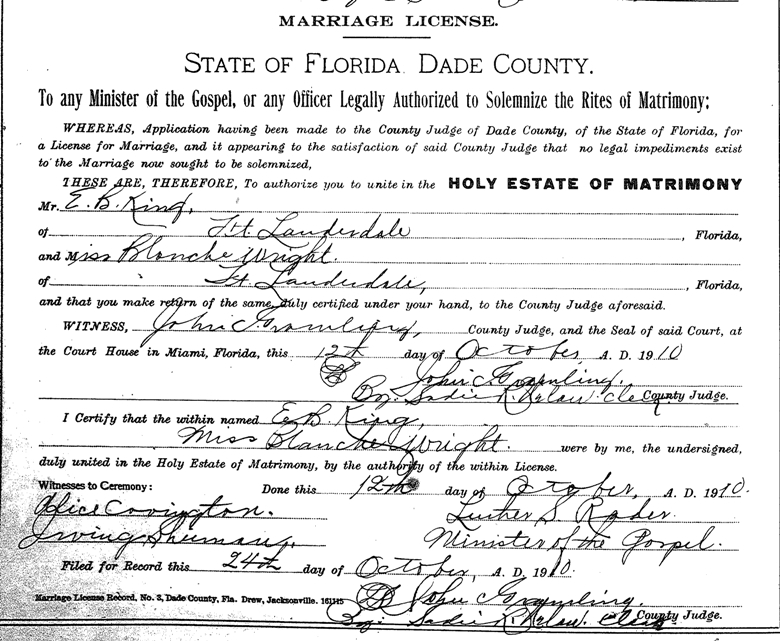 MARRIAGE LICENSE.
STATE OF FLORIDA DADE COUNTY.
To any Minister of the Gospel, or any Officer Legally Authorized to Solemnize the Rites of Matrimony:
WHEREAS, Application having been made to the County Judge of Dade County, of the State of Florida, for
a License for Marriage, and it appearing to the satisfaction of said County Judge that no legal impediments exist
to the Marriage now sought to be solemnized,
THESE ARE, THEREFORE, To authorize you to unite in the HOLY ESTATE OF MATRIMONY
Mr. E. B. King,
of Ft. Lauderdale, Florida,
and Miss Blanche Wright.
of Ft. Lauderdale, , Florida,
and that you make return of the same, duly certified under your hand, to the County Judge aforesaid.
WITNESS, John C. Gramling, County Judge, and the Seal of said Court, at
the Court House in Miami, Florida, this 12th day of October, A. D. 1910
John C. Gramling.
By: Sadie R. Clerk County Judge.
I Certify that the within named E. B. King,
Miss Blanche Wright. were by me, the undersigned,
duly united in the Holy Estate of Matrimony, by the authority of the within License.
Witnesses to Ceremony: Done this 12th day of October, A. D. 1910.
Alice Covington. Luther S. Rader.
Irving Shuman, Minister of the Gospel.
Filed for Record this 24th day of October, A. D. 1910.
Marriage License Record, No. 3, Dade County, Fla. Drew, Jacksonville. John C. Gramling.
By: Sadie R. Clerk County Judge.